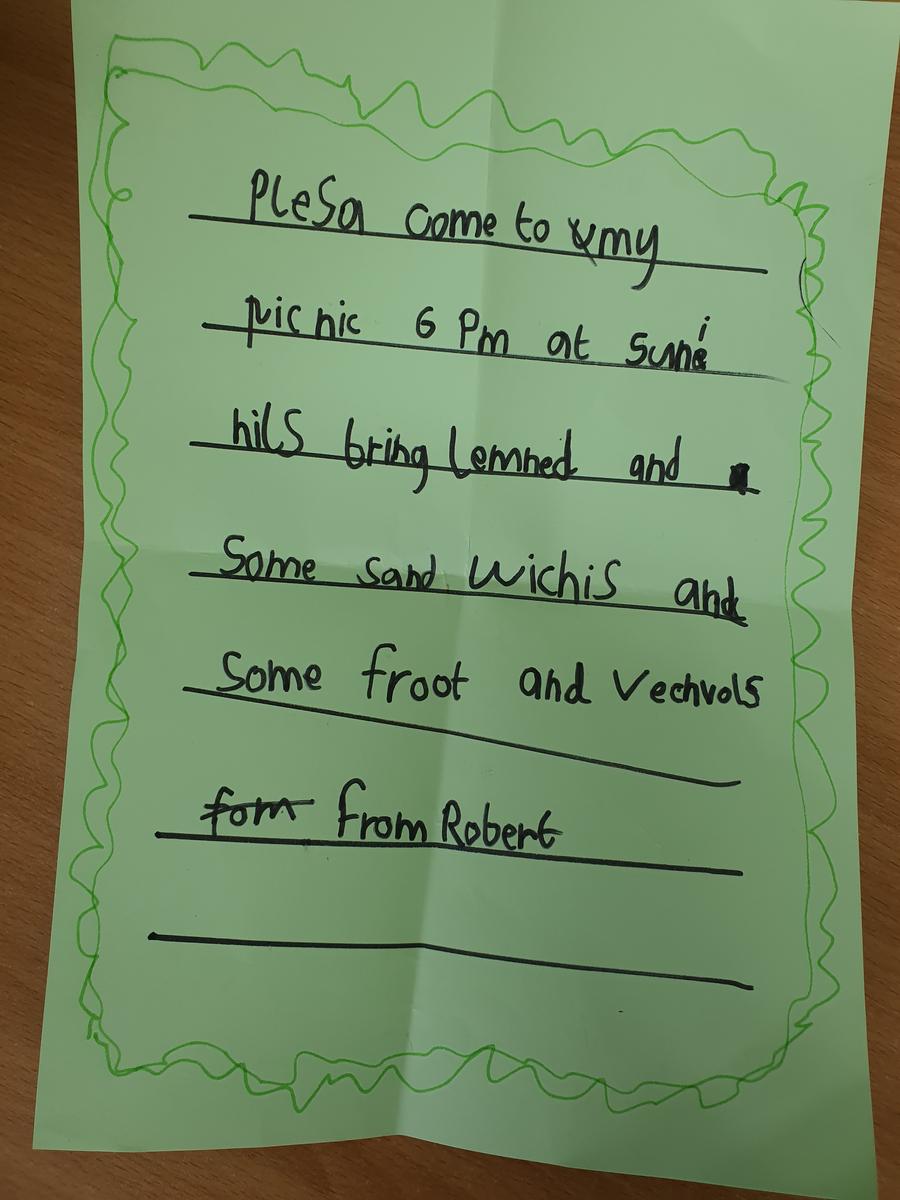 PleSa come to my
picnic 6 Pm at suni
hilS bring lemned and
Some sand WichiS and
Some froot and VechvolS
fom From Robert